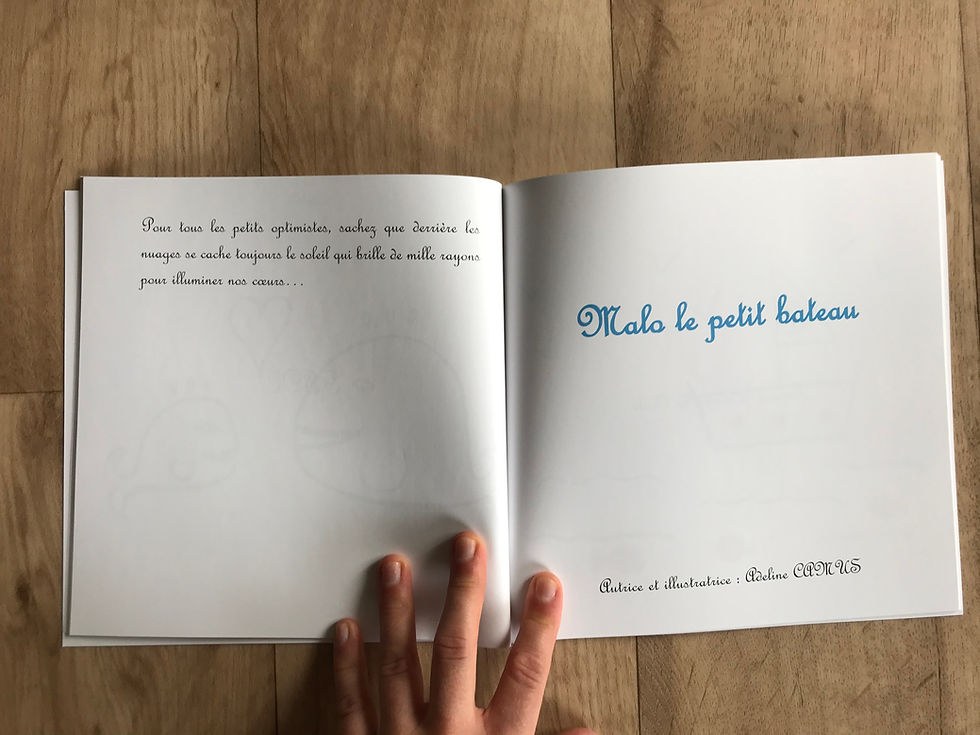 Pour tous les petits optimistes, sachez que derrière les
nuages se cache toujours le soleil qui brille de mille rayons
pour illuminer nos cœurs...
Malo le petit bateau
Autrice et illustratrice : Adeline CAMUS